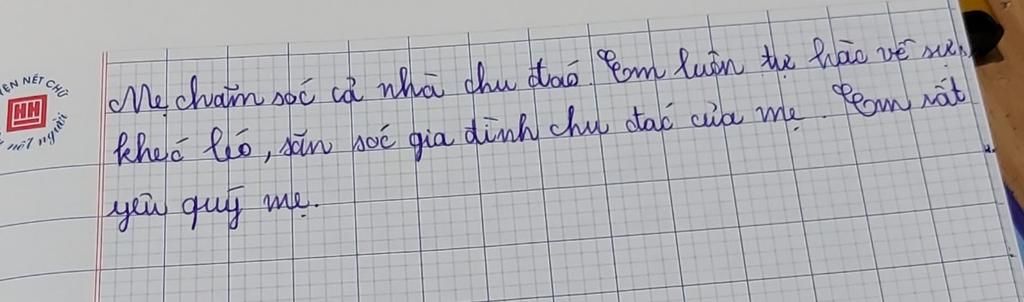 ÈN NÉT CHỮ
HH
nết người
Mẹ chăm sóc cả nhà chu đáo. Em luôn tự hào về sự
khéo léo, săn sóc gia đình chu đáo của mẹ. Em rất
yêu quý mẹ.